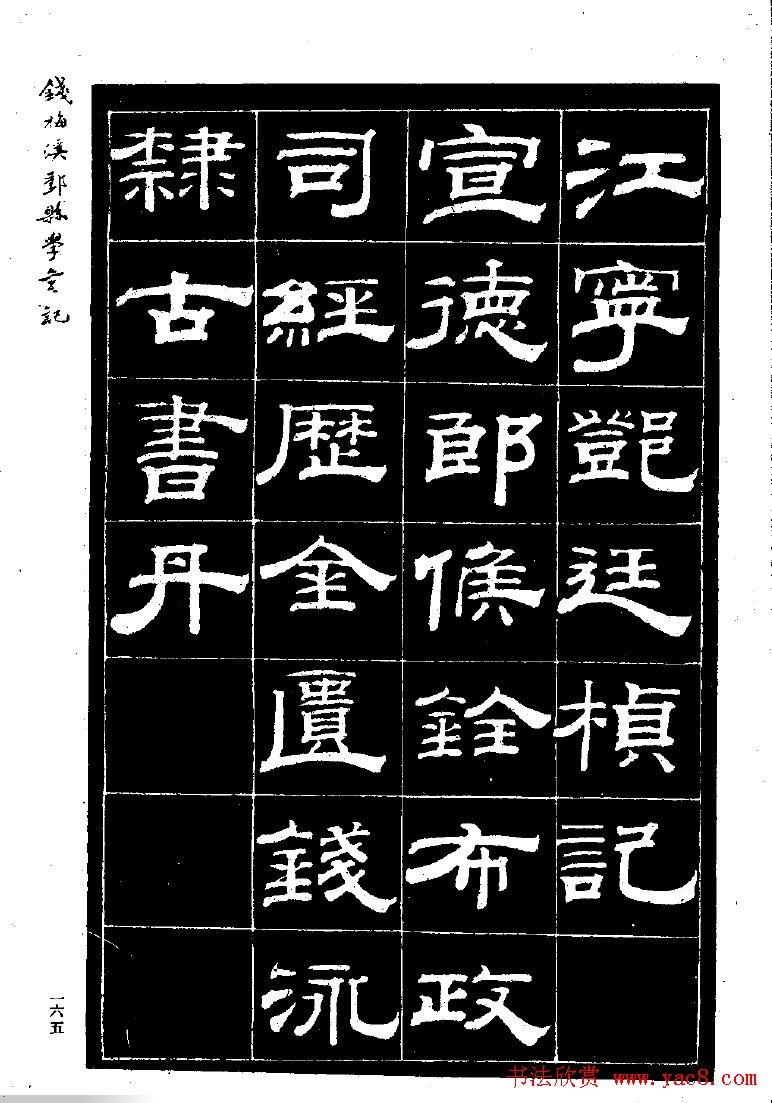 江寧鄧廷楨記
宣德郎候銓布政
司經歷金匱錢泳
隸古書丹
錢梅溪鄞縣學宮記
一六五
书法欣赏 www.yac8.com